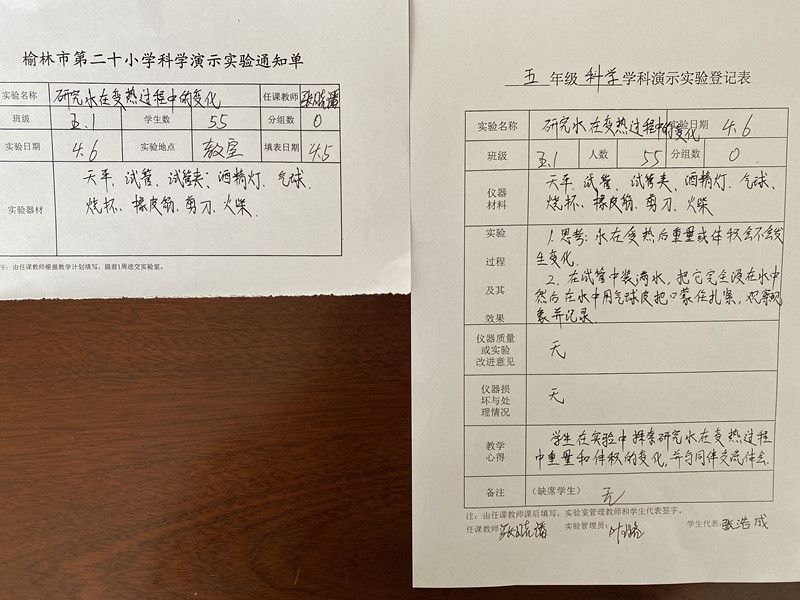 榆林市第二十小学科学演示实验通知单
实验名称 研究水在变热过程中的变化 任课教师
班级 五.1 学生数 55 分组数 0
实验日期 4.6 实验地点 教室 填表日期 4.5
实验器材
天平、试管、试管夹、酒精灯、气球、
烧杯、橡皮筋、剪刀、火柴.
注：由任课教师根据教学计划填写，提前1周送交实验室。
五 年级 科学 学科演示实验登记表
实验名称 研究水在变热过程中的变化 实验日期 4.6
班级 五.1 人数 55 分组数 0
仪器
材料
天平、试管、试管夹、酒精灯、气球、
烧杯、橡皮筋、剪刀、火柴
实验
过程
及其
效果
1.思考：水在受热后重量或体积会不会发
生变化.
2、在试管中装满水，把它完全浸在水中
然后在水中用气球皮把口蒙住扎紧，观察现
象并记录.
仪器质量
或实验
改进意见
无
仪器损
坏与处
理情况
无
教学
心得
学生在实验中探索研究水在变热过程
中重量和体积的变化，并与同伴交流体会.
备注 （缺席学生） 无
注：由任课教师课后填写，实验室管理教师和学生代表签字。
任课教师： 实验管理员： 学生代表：张浩成